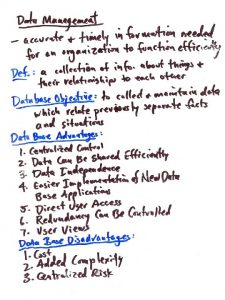 Data Management
- accurate + timely information needed
for an organization to function efficiently
Def.: a collection of info. about things +
their relationships to each other
Database Objective: to collect + maintain data
which relate previously separate facts
and situations
Data Base Advantages:
1. Centralized Control
2. Data Can Be Shared Efficiently
3. Data Independence
4. Easier Implementation of New Data
Base Applications
5. Direct User Access
6. Redundancy Can Be Controlled
7. User Views
Data Base Disadvantages:
1. Cost
2. Added Complexity
3. Centralized Risk